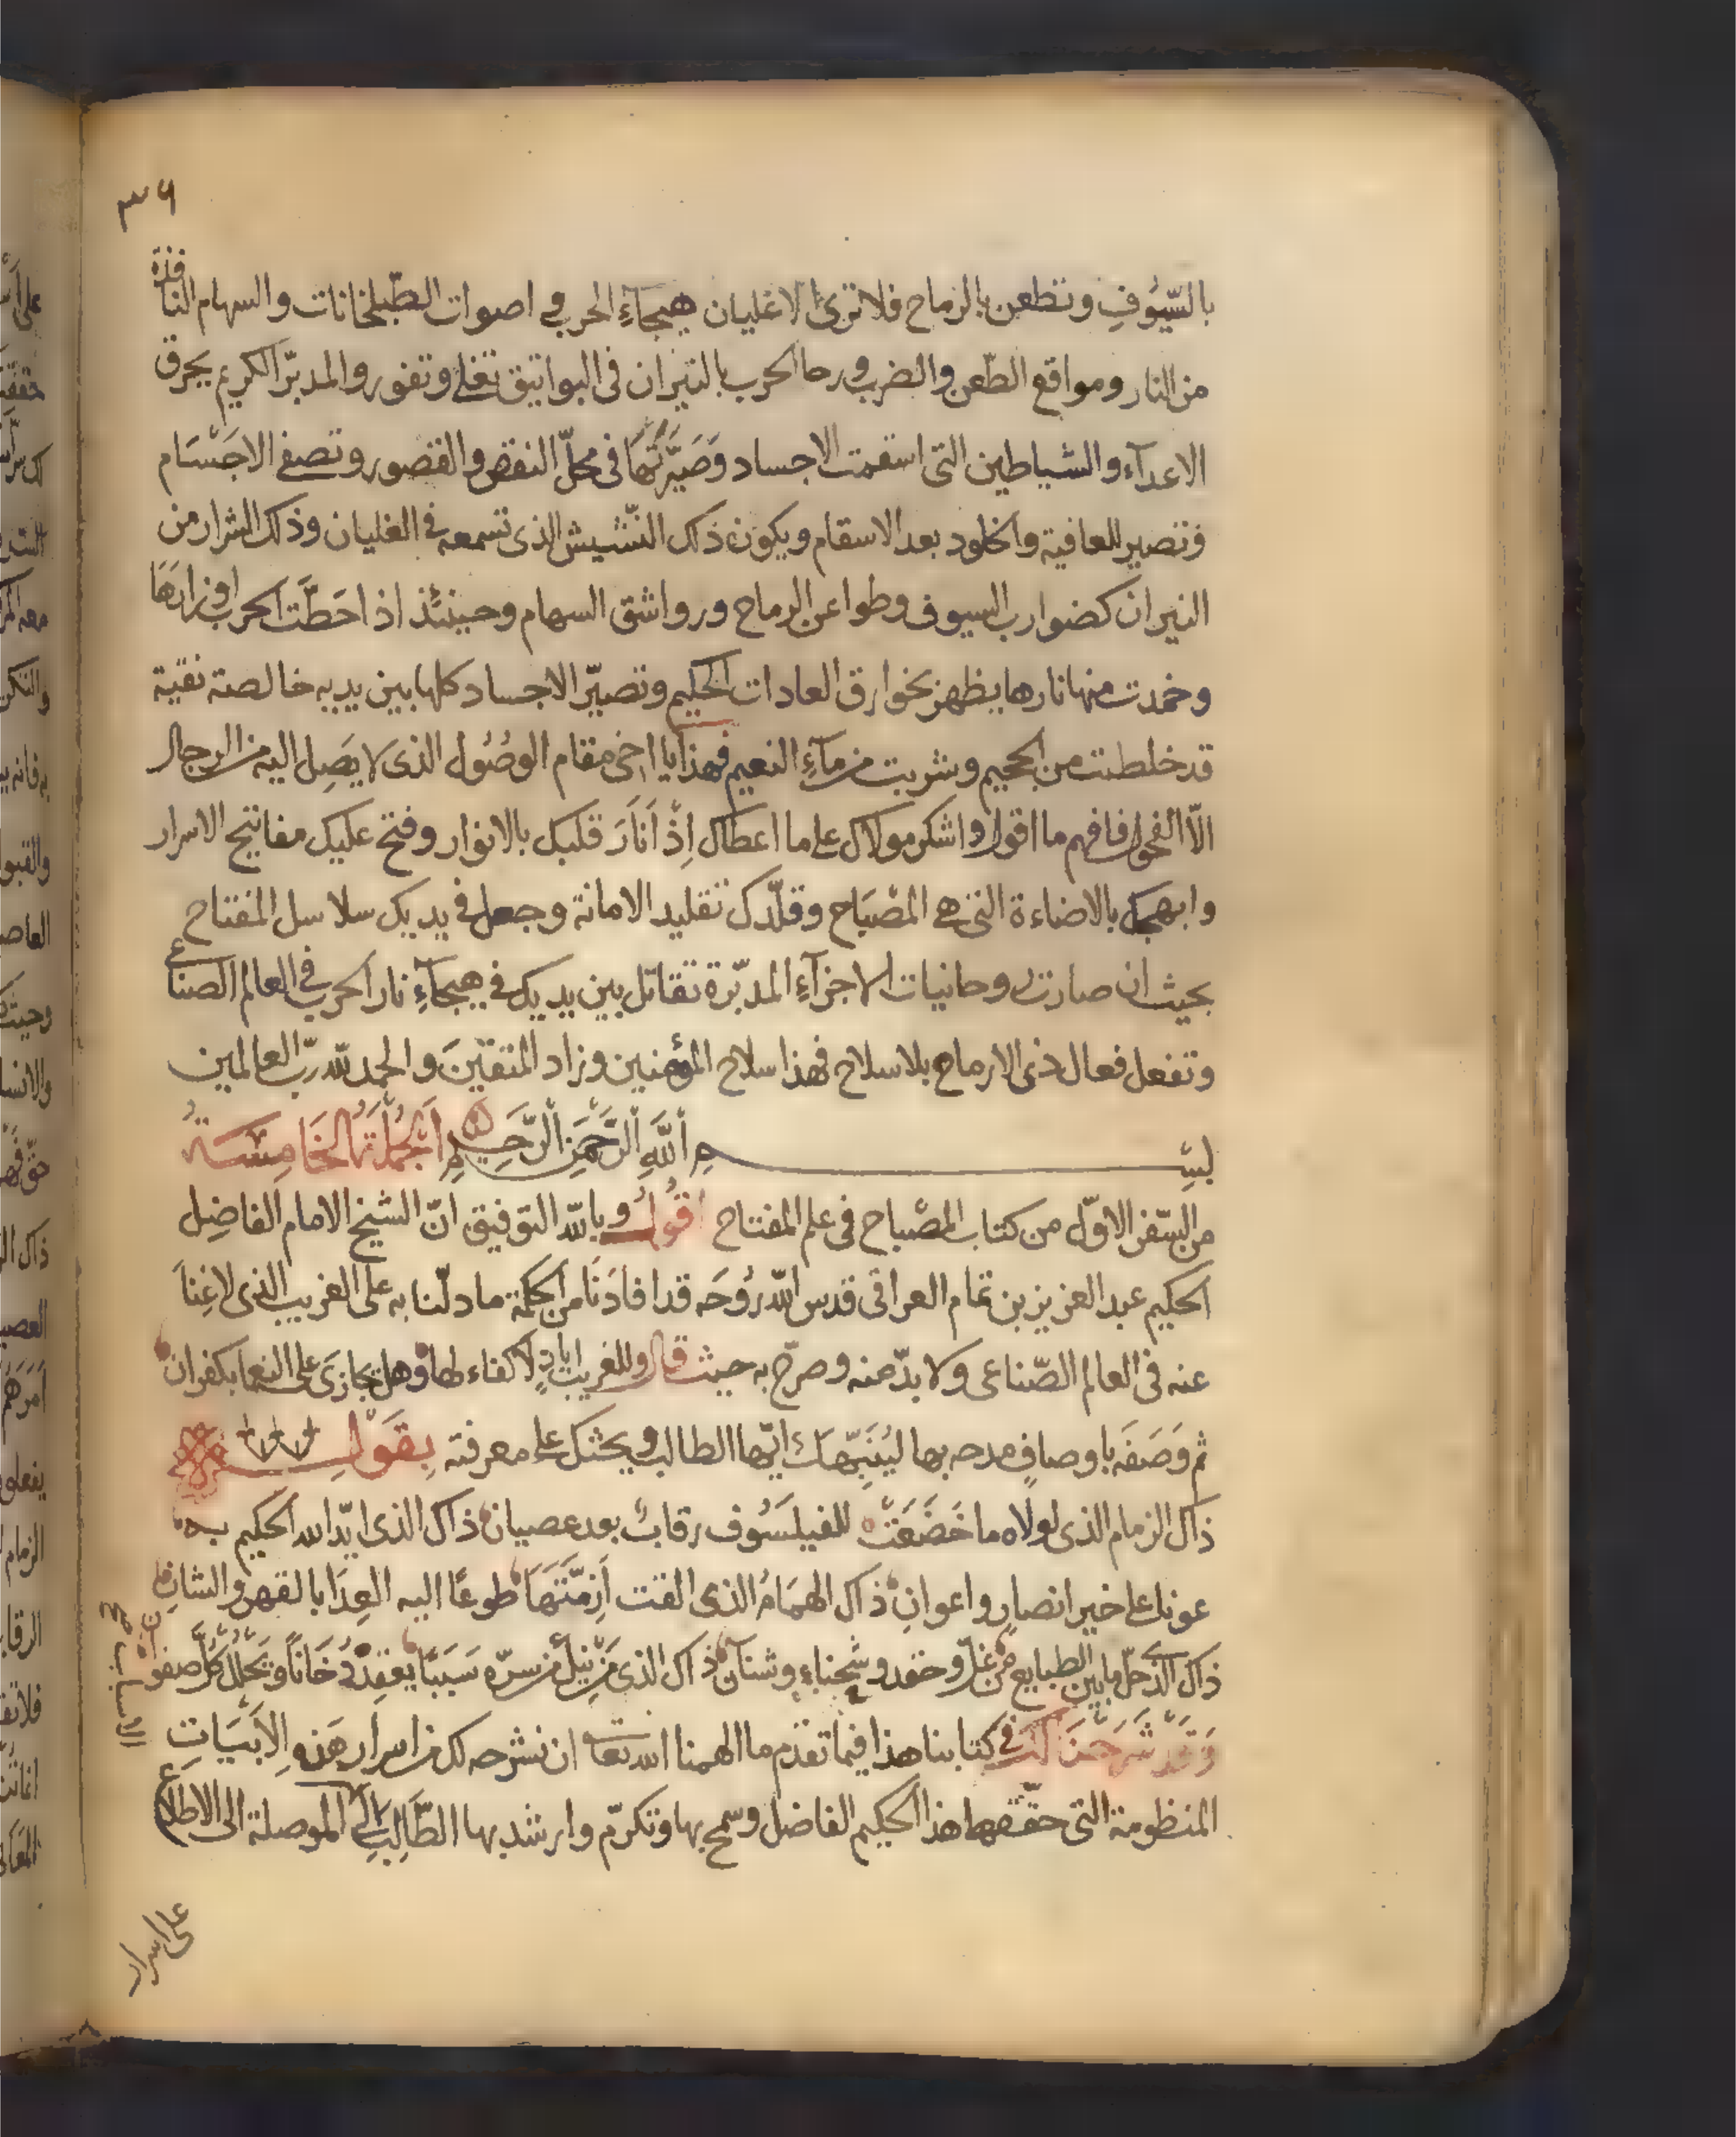 ٣٦
بالسّيُوفِ وتطعن بالرماح فلا ترى الا غليان هيجاءِ الحرب في اصوات الطّبلخانات والسهام النافذة
من النار ومواقع الطّعن والضرب ورحا الحرب بالنيران فى البواتيق تغلى وتفور والمدبّر الكريم يحرق
الاعدآء والشياطين التى اسقمت الاجساد وَصَيَّرَتْهَا فى محلّ النقص والقصور وتصفى الاجْسَام
فتصير للعافية والخلود بعد الاسقام ويكون ذلك النّشيش الذى تسمعه فى الغليان وذلك الشرار من
النيران كضوارب السيوف وطواعن الرماح ورواشق السهام وحينئذ اذا حَطَّت الحرب اوزارهَا
وخمدت منها نارها يظهر بخوارق العادات الحكيم وتصيّر الاجساد كلها بين يديه خالصة نقية
قد خلطت من الجحيم وشربت من مآءِ النعيم فهذا يا اخى مقام الوصُول الذى لا يَصِل اليه من الرجال
الّا الفحول فافهم ما اقول واشكر مولاك على ما اعطاك اِذْ اَنَارَ قلبك بالانوار وفتح عليك مفاتيح الاسرار
وابهجك بالاضاءة التى هى المصْبَاح وقلّدك تقليد الامانة وجعل فى يديك سلاسل المفتاح
بحيث ان صارت روحانيات الاجزآءِ المدبّرة تقاتل بين يديك فى هيجآءِ نار الحرب فى العالم الصناعى
وتفعل فعال ذى الارماح بلا سلاح فهذا سلاح المؤمنين وزاد المتقيّنَ والحمد للّه ربّ العالمين
بسم اللَّهِ الرَّحْمَنِ الرَّحِيمِ الجُمْلَةُ الخَامِسَةُ
من السّفر الاوّل من كتاب المصْباح فى علم المفتاح اقُولُ وباللّه التوفيق انّ الشيخ الامام الفاضِل
الحكيم عبد العزيز بن تمام العراقى قدس اللّه روُحَه قد افادَنَا من الحكمة ما دلّنا به على الغريب الذى لا غِنَا
عنه فى العالم الصّناعى ولا بدّ منه وصرّح به حيث قال وللغريب ايادٍ لا كفاء لها وهل تجازَى على النعما بكفران
ثم وَصَفَه باوصافٍ مدحه بها ليُنَبِّهَكَ ايّها الطالب ويحثك على معرفته بِقَوْلِهِ
ذاك الزمام الذى لولاه ما خَضَعَتْ للفيلسَوُف رقابٌ بعد عصيان ذاك الذى ايّد الله الحكيم به
عونا على خير انصار واعوانِ ذاك الهمَامُ الذى القت اَزِمَّتَهَا طوعًا اليه العِدَا بالقهر والشانِ
ذاك الذى حلّ ما بين الطبايع من غلّ وحقد وشحناءٍ وشنآن ذاك الذى من نيل من سرّه سَبَبًا يعقِدُ دُخَانًا وَيَحْلُلْ كُلَّ صفوان
وَقَدْ شَرَحْنَا لَكَ فى كتابنا هذا فيما تقدّم ما الهمنا الله تعا ان نشرحه لك من اسرار هَذهِ الاَبْيَاتِ
المنظومة التى حقّقها هذا الحكيم الفاضل وسمح بها وتكرّم وارشد بها الطَّالِبَ الى الموصلة الى الاطلاع
الاسباب صح
على اسرار